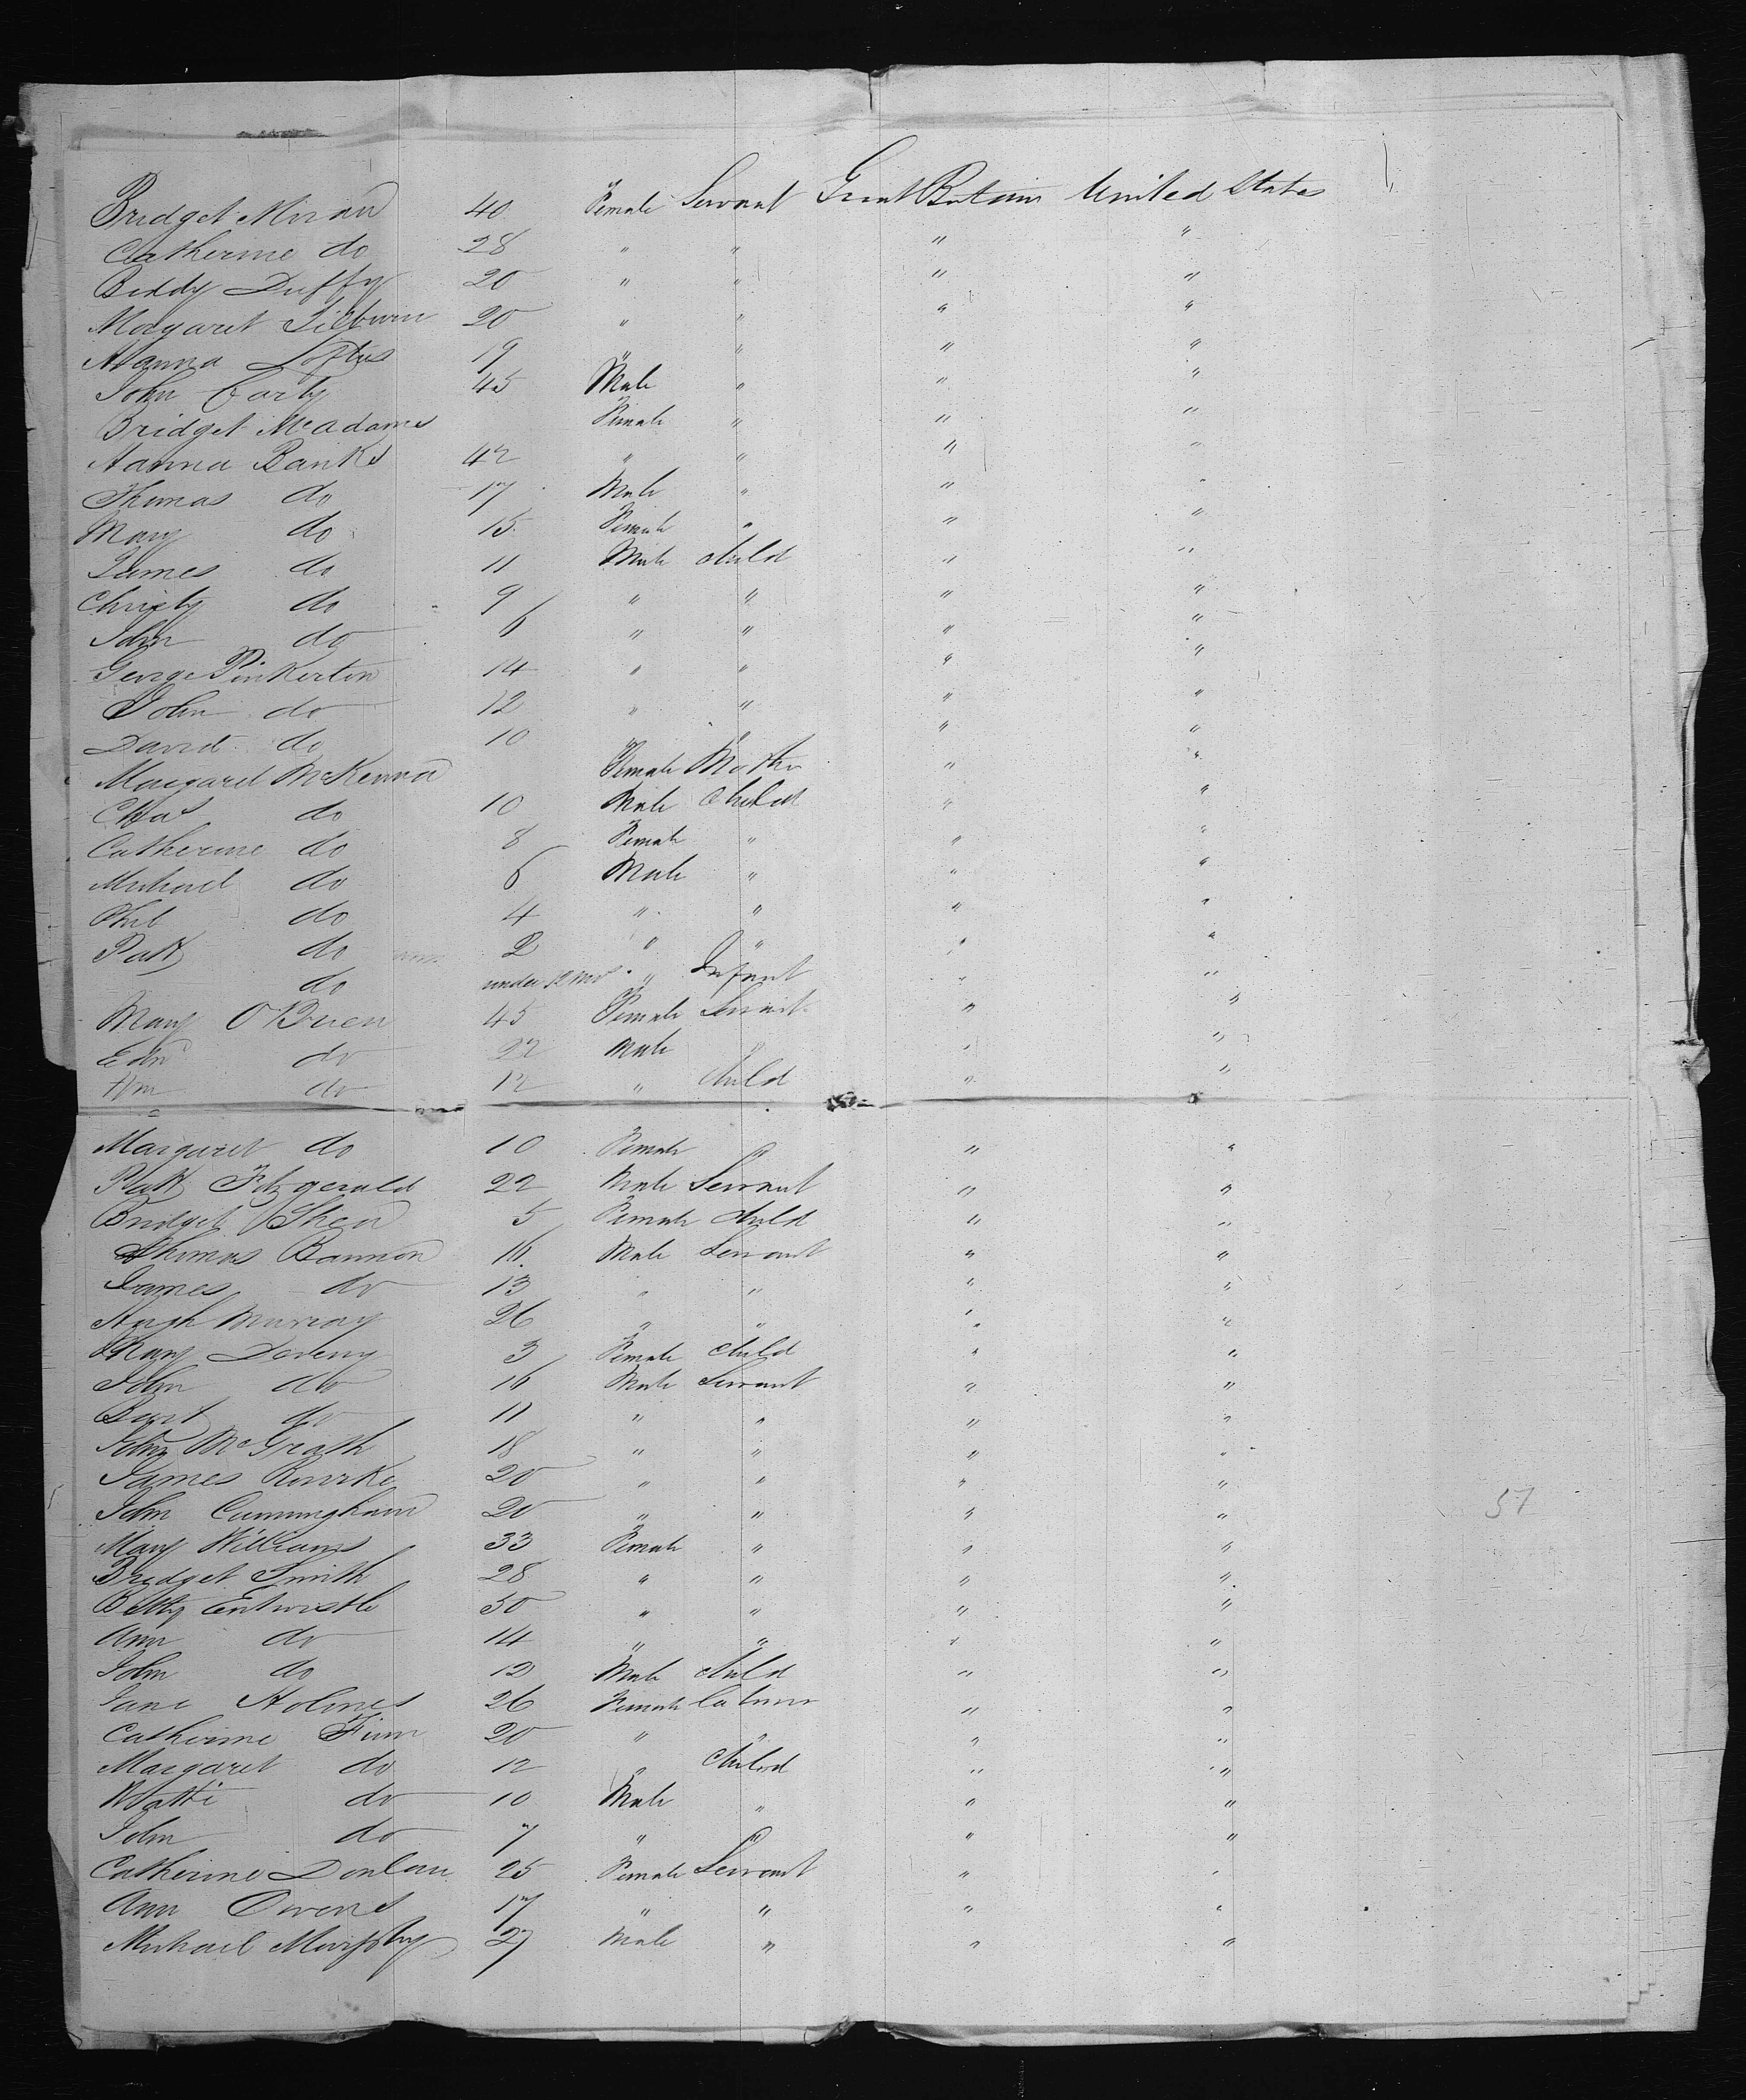 Bridget Miran 40 Female Servant Great Britain United States
Catherine do 28 " " " "
Biddy Duffy 20 " " " "
Margaret Kilburn 20 " " " "
Hanna Loftus 19 " " " "
John Carty 45 Male " " "
Bridget McAdams Female " " "
Hanna Banks 42 " " " "
Thomas do 17 Male " " "
Mary do 15 Female " " "
James do 11 Male Child " "
Christy do 9 " " " "
John do 6 " " " "
George Pinkerton 14 " " " "
John do 12 " " " "
David do 10 " " " "
Margaret McKenna Female Mother " "
Chas do 10 Male Child " "
Catherine do 8 Female " " "
Michael do 6 Male " " "
Phil do 4 " " " "
Patt do 2 " " " "
do under 12 mos " Infant " "
Mary O'Brien 45 Female Servant " "
Edwd do 22 Male " " "
Wm do 12 " Child " "
Margaret do 10 Female " " "
Patt Fitzgerald 22 Male Servant " "
Bridget Shea 5 Female Child " "
Thomas Bannon 16 Male Servant " "
James do 13 " " " "
Hugh Murray 26 " " " "
Mary Doveny 3 Female Child " "
John do 16 Male Servant " "
Bart do 11 " " " "
John McGrath 18 " " " "
James Rourke 20 " " " "
John Cunningham 20 " " " " 57
Mary Williams 33 Female " " "
Bridget Smith 28 " " " "
Betty Entwistle 50 " " " "
Ann do 14 " " " "
John do 12 Male Child " "
Jane Holmes 26 Female " "
Catherine Finn 20 " " " "
Margaret do 12 " Child " "
do 10 Male " " "
John do 7 " " " "
Catherine Donlan 25 Female Servant " "
Ann Owens 17 " " " "
Michael Murphy 27 Male " " "